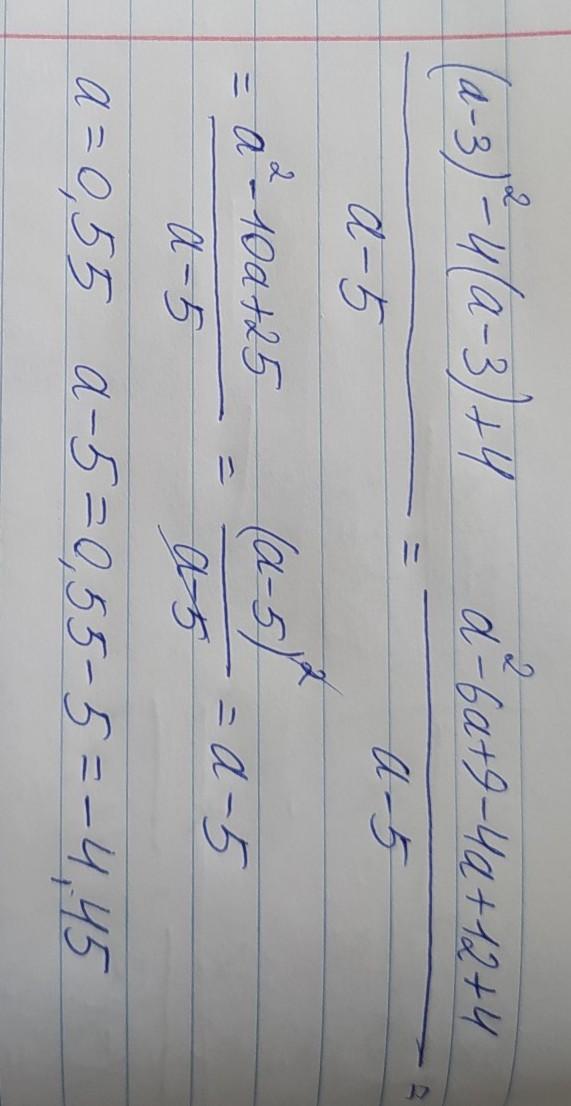 (a-3)²-4(a-3)+4 / a-5 = a²-6a+9-4a+12+4 / a-5 =
= a²-10a+25 / a-5 = (a-5)² / a-5 = a-5
a=0,55 a-5=0,55-5=-4,45